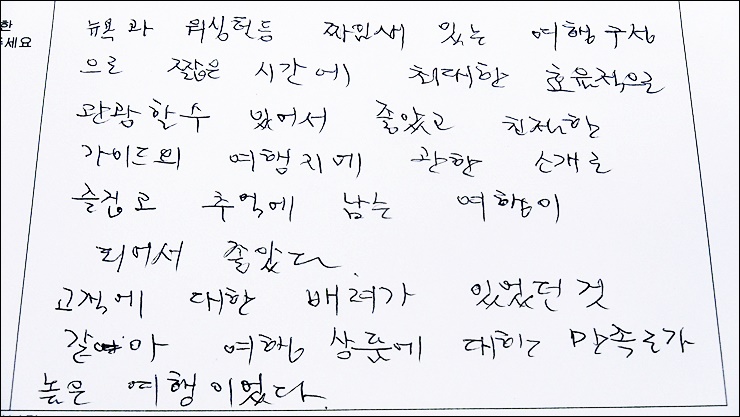 한
주세요
뉴욕과 워싱턴등 짜임새 있는 여행 구성
으로 짧은 시간에 최대한 효율적으로
관광할수 있어서 좋았고 친절한
가이드의 여행지에 관한 소개로
즐겁고 추억에 남는 여행이
되어서 좋았다.
고객에 대한 배려가 있었던 것
같아 여행 상품에 대한 만족도가
높은 여행이었다.